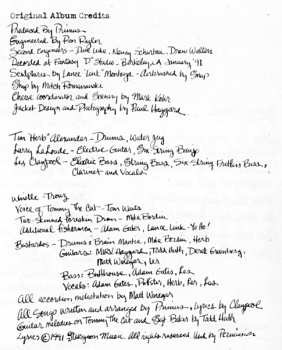 Original Album Credits
Produced By Primus
Engineered By Ron Rigler
Second Engineers - Luke, Nancy Scharlau, Drew Walters
Recorded at Fantasy "D" Studio, Berkeley, CA January '91
Sculptures - by Lance "Link" Montoya - Airbrushed by Snap
Snap by Mitch Romanauski
Cheese coordinator and Scenery by Mark Kohr
Jacket Design and Photography by Paul Haggard
Tim "Herb" Alexander - Drums,
Larry LaLonde - Electric Guitar, Six String Banjo
Les Claypool - Electric Bass, String Bass, Six-String Fretless Bass,
Clarinet and Vocals
Whistle - Troug
Voice of Tommy The Cat - Tom Waits
Mike Bordin
Additional fishermen - Adam Gates, Lance Link - Yo Ho!
Bastardos - Drums: Brain Mantia, Mike Bordin, Herb
Guitars: MIRV Haggard, Todd Huth, Derek Greenberg,
Matt Winegar, Ler
Bass: Adam Gates, Les
Vocals: Adam Gates, Herb, Ler, Les
All accordion by Matt Winegar
All Songs written and arranged by Primus, Lyrics by Claypool
Guitar melodies on Tommy the Cat and Sgt. Baker by Todd Huth
Lyrics © 1991 Sturgeon Music. All rights reserved. Used by Permission